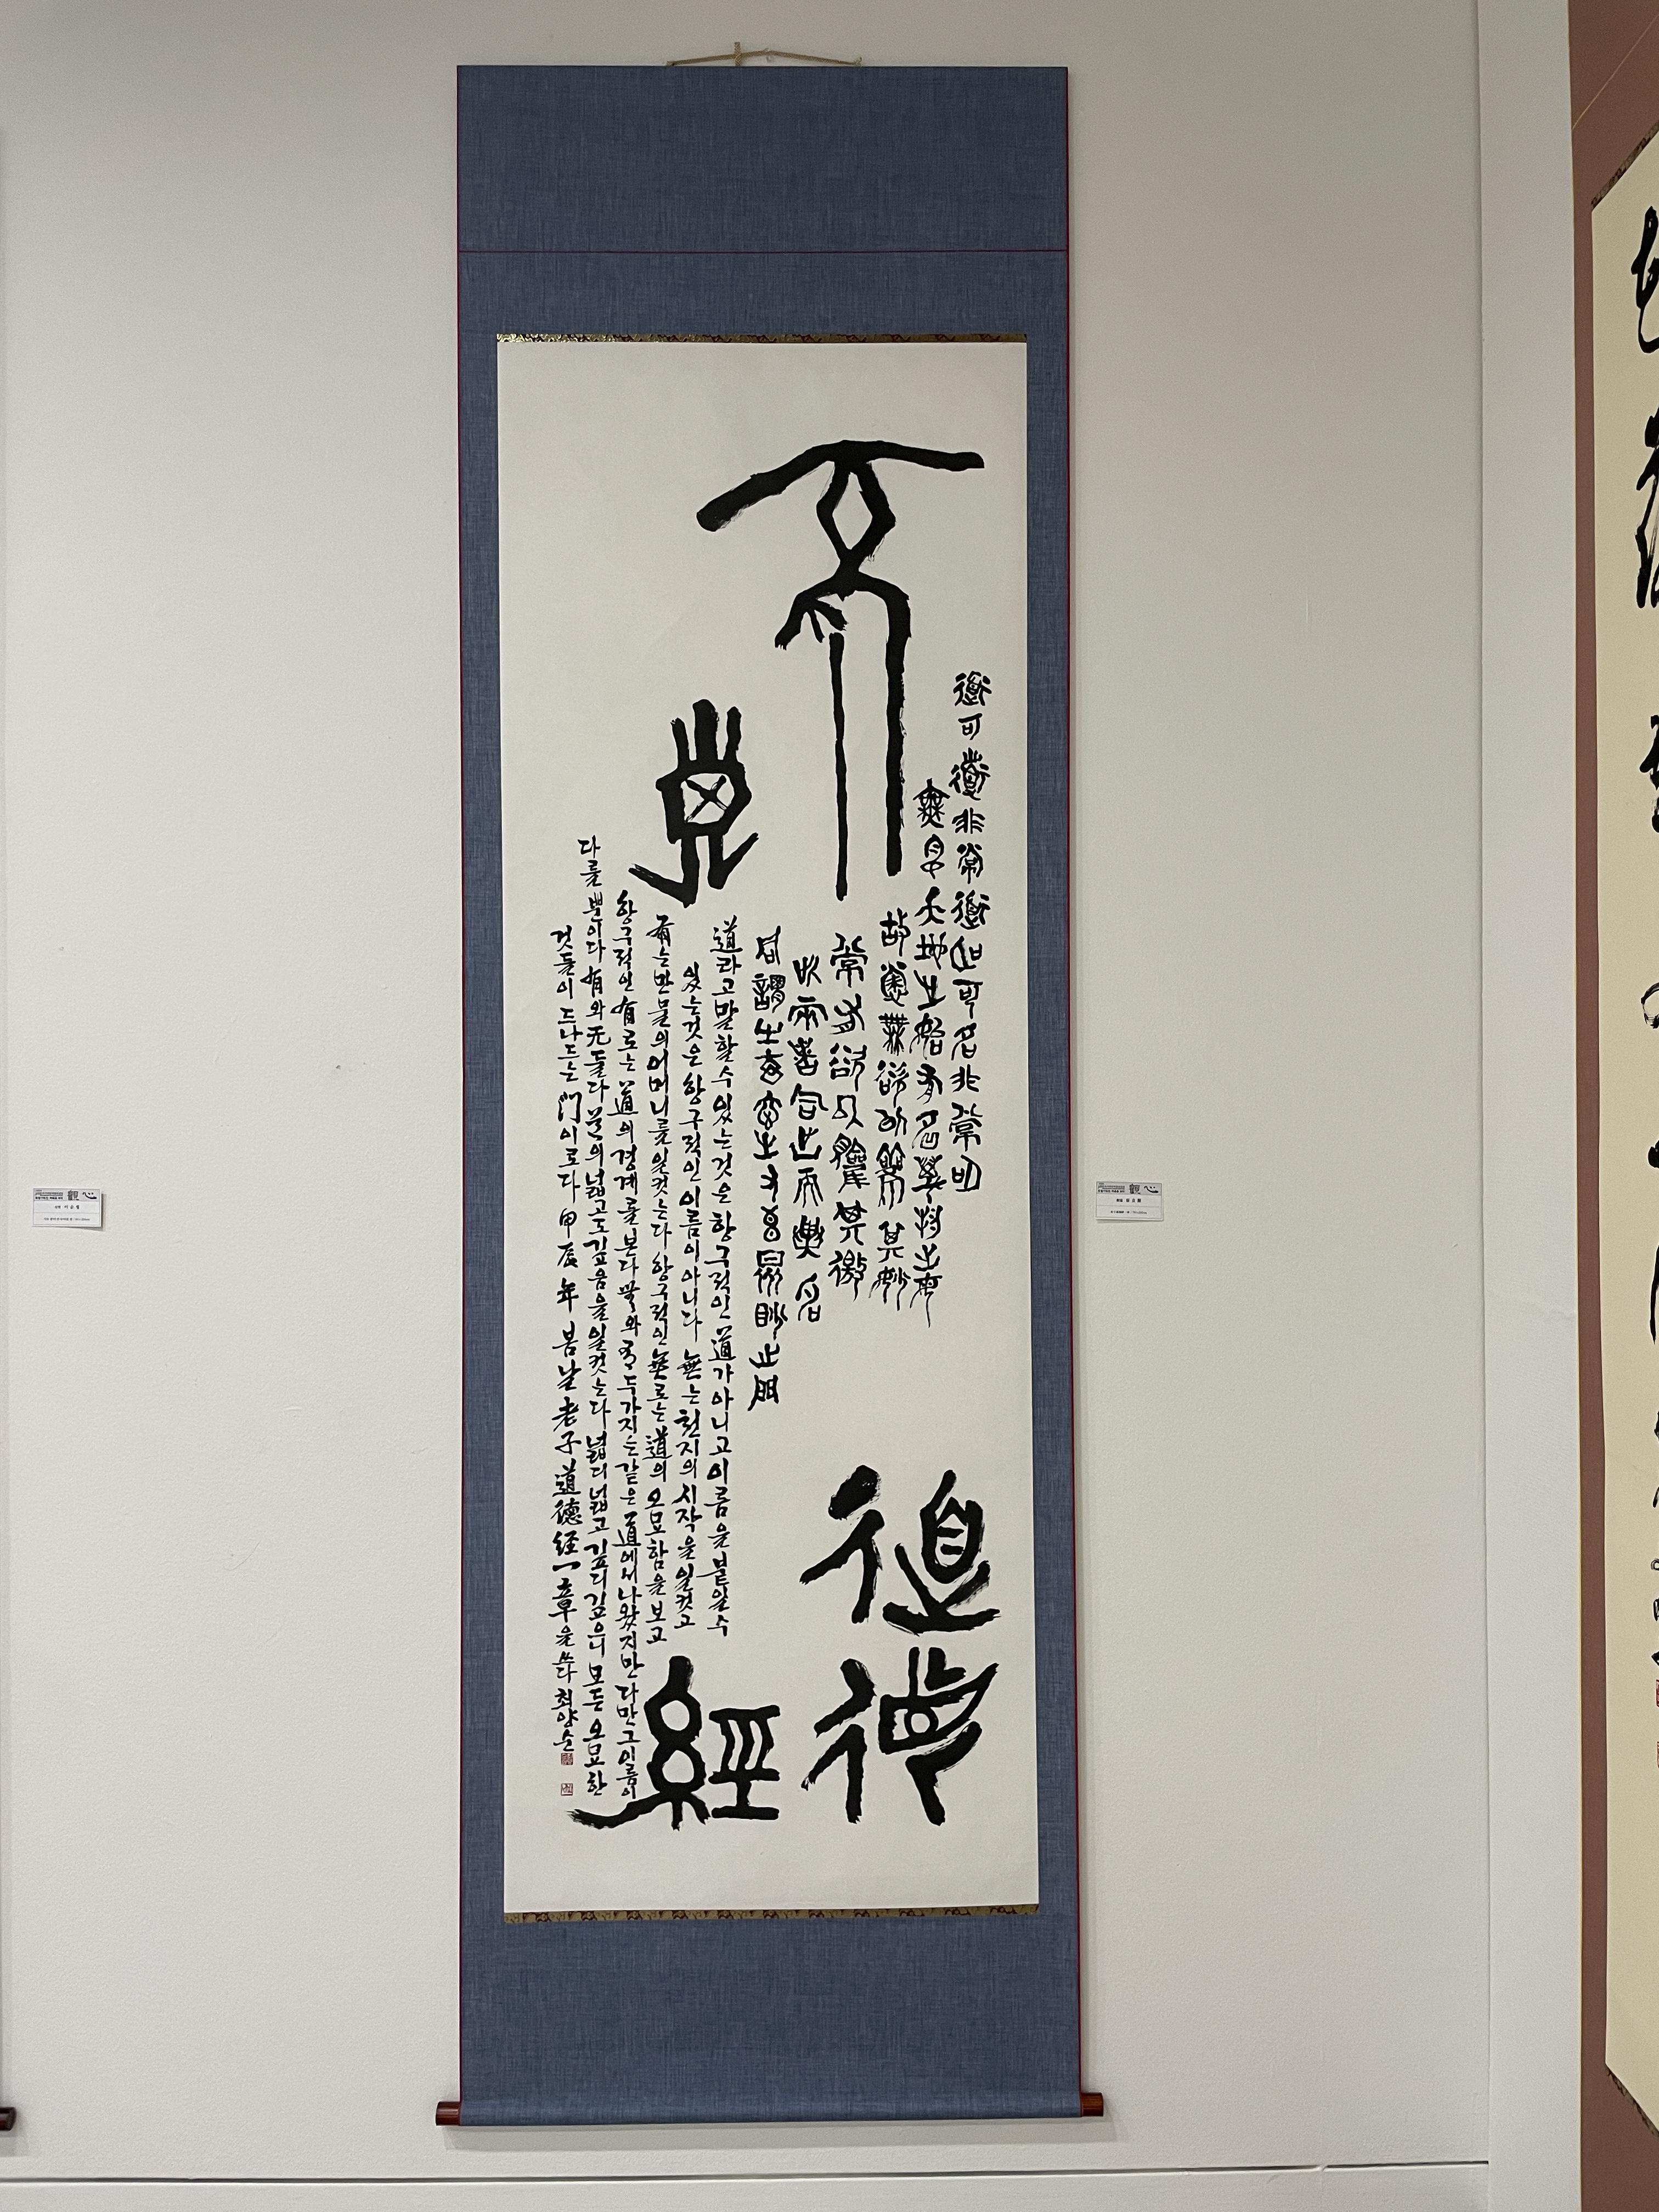 道可道非常道名可名非常名
無名天地之始有名萬物之母
故常無欲以觀其妙
常有欲以觀其徼
此兩者同出而異名
同謂之玄玄之又玄衆妙之門
道라고말할수있는것은항구적인道가아니고이름을붙일수
있는것은항구적인이름이아니다無는천지의시작을일컷고
有는만물의어머니를일컷는다항구적인無로는道의오묘함을보고
항구적인有로는道의경계를본다無와有두가지는같은道에서나왔지만다만그이름이
다를뿐이다有와无둘다道의넓고도깊음을일컷는다넓디넓고깊디깊으니모든오묘한
것들이드나드는門이로다甲辰年봄날老子道德经一章을쓰다최양순
道德
經
觀心
觀心